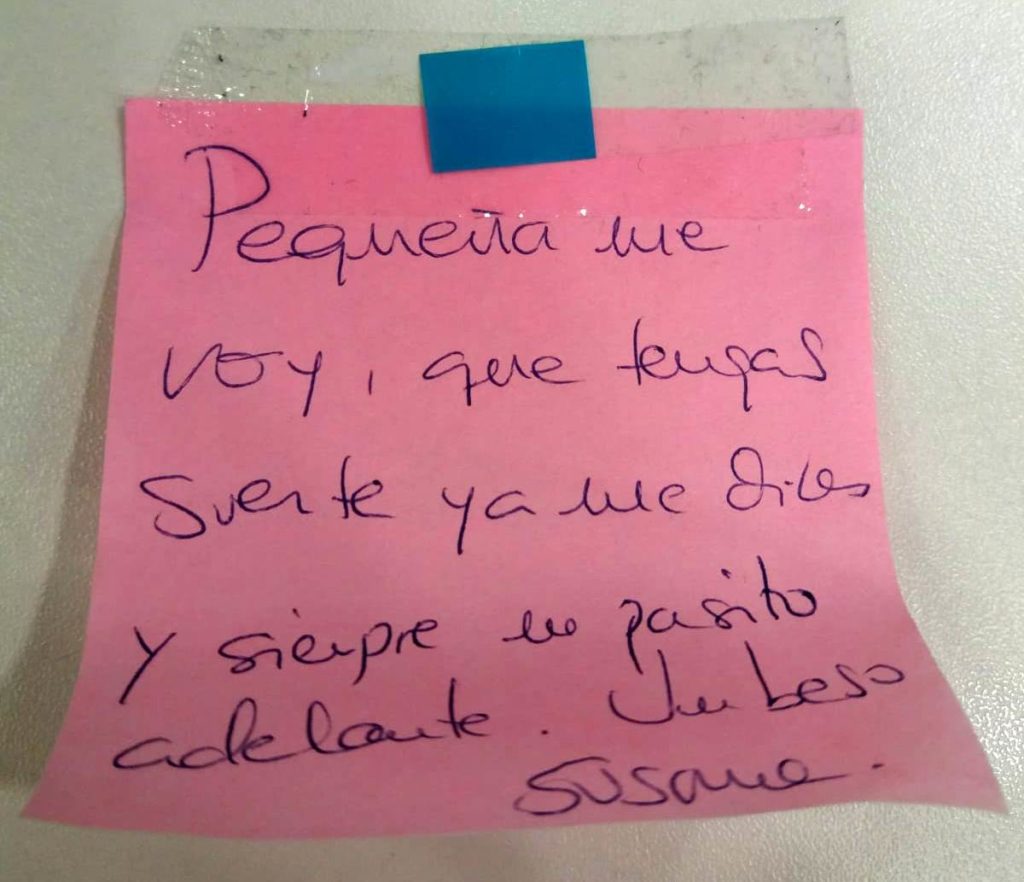 Pequeña me
voy, que tengas
suerte ya me dices
y siempre un pasito
adelante. Un beso
Susana.